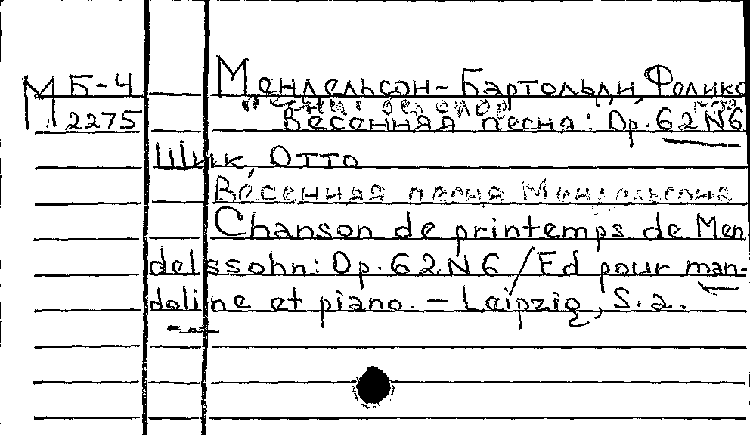 М Б-4 Мендельсон-Бартольди, Феликс
2275 Весенняя песня: Op. 62 N6
Шик, Отто
Весенняя песня Мендельсона
Chanson de printemps de Men
delssohn: Op. 62 N 6 / Ed pour man-
doline et piano. – Leipzig, S. a.